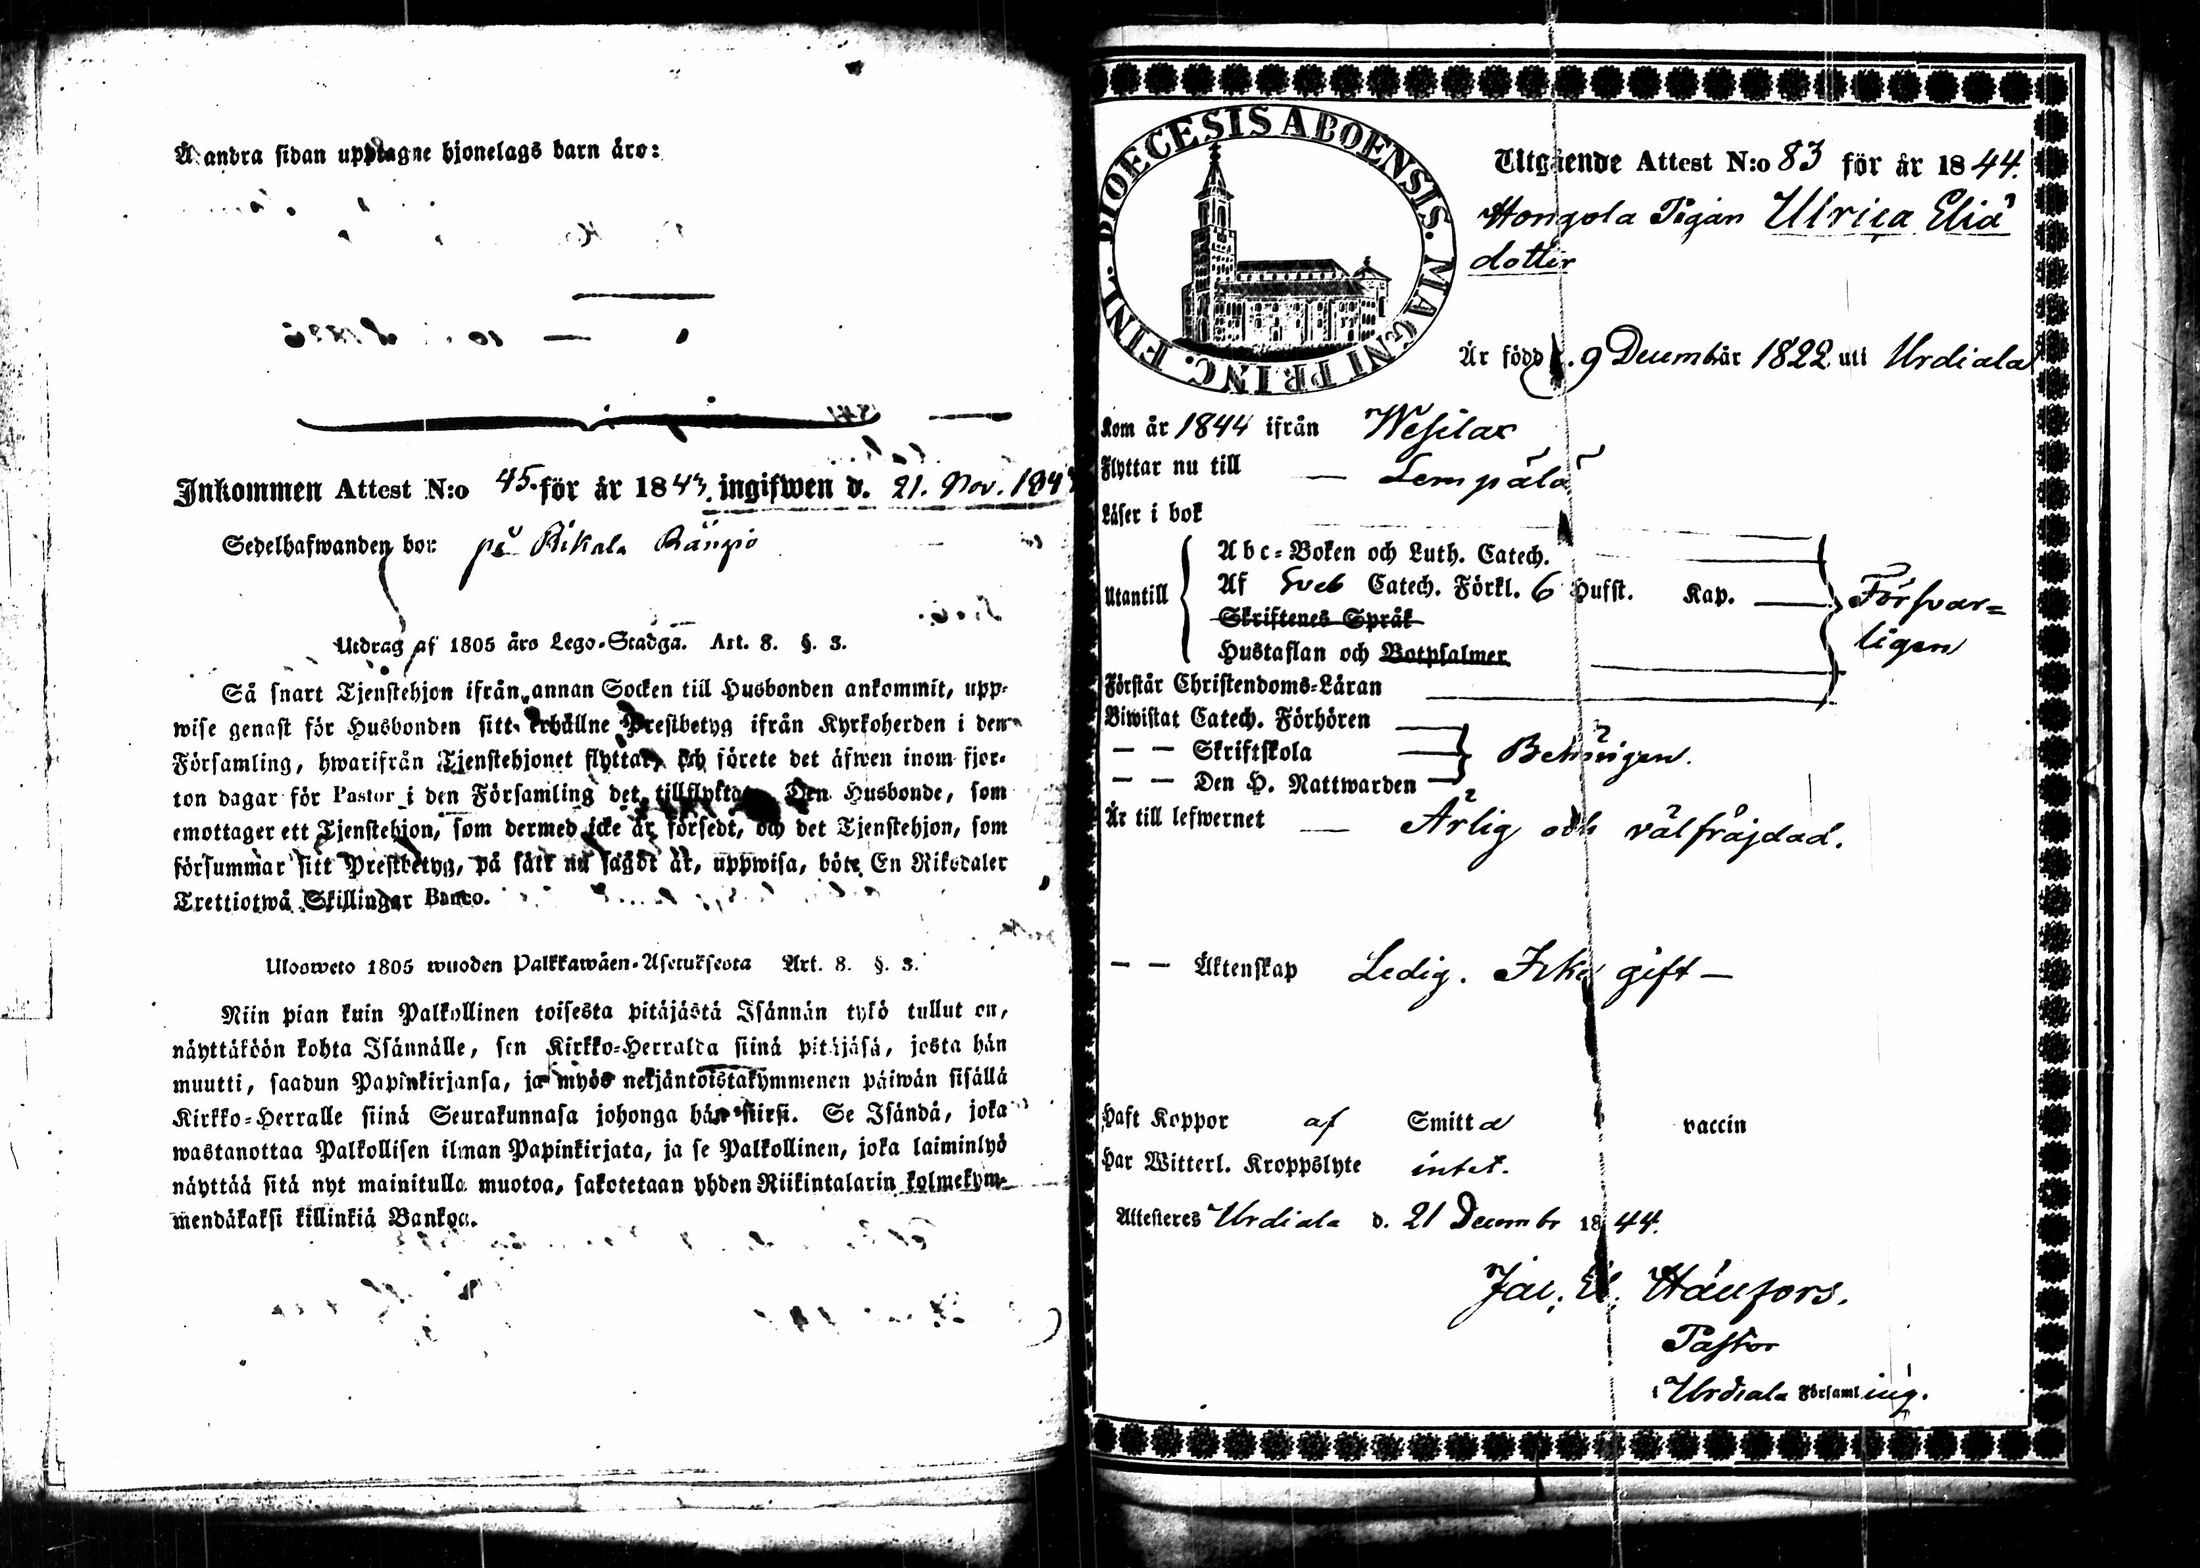 Å andra sidan upptagne hjonelags barn äro:
Inkommen Attest N:o 45. för år 1843. ingifwen d. 21. Nov. 184
Sedelhafwanden bor: på Rikala Rängiö
Utdrag af 1805 års Lego-Stadga. Art. 8. §. 3.
Så snart Tjenstehjon ifrån annan Socken till Husbonden ankommit, upp-
wise genast för Husbonden sitt erhållne Prestbetyg ifrån Kyrkoherden i den
Församling, hwarifrån Tjenstehjonet flyttat, och förete det äfwen inom fjor-
ton dagar för Pastor i den Församling det tillflyktat. Den Husbonde, som
emottager ett Tjenstehjon, som dermed icke är försedt, och det Tjenstehjon, som
försummar sitt Prestbetyg, på sätt nu sagdt är, uppwisa, böte En Riksdaler
Trettiotwå Skillingar Banco.
Ulosweto 1805 wuoden Palkkawäen-Asetuksesta Art. 8. §. 3.
Niin pian kuin Palkollinen toisesta pitäjästä Isännän tykö tullut on,
näyttäköön kohta Isännälle, sen Kirkko-Herralda siinä pitäjäsä, josta hän
muutti, saadun Papinkirjansa, ja myös neljäntoistakymmenen päiwän sisällä
Kirkko-Herralle siinä Seurakunnasa johonga hän siirsi. Se Isändä, joka
wastanottaa Palkollisen ilman Papinkirjata, ja se Palkollinen, joka laiminlyö
näyttää sitä nyt mainitulla muotoa, sakotetaan yhden Riikintalarin kolmekym-
mendäkaksi killinkiä Bankoa.
DIOECESIS ABOENSIS. MAGNI PRINC. FINL.
Utgående Attest N:o 83 för år 1844.
Hongola Pigan Ulrica Elia
dotter
Är född d. 9 Decembr år 1822 uti Urdiala
Kom år 1844 ifrån Wesilax
Flyttar nu till — Lempälä
Läser i bok
Utantill
Abc-Boken och Luth. Catech.
Af Sveb Catech. Förkl. 6 Hufst. Kap. —
Skriftenes Språk
Hustaflan och Botpsalmer
Försvar=
ligen
Förstår Christendoms-Läran
Biwistat Catech. Förhören
— — Skriftskola
— — Den H. Nattwarden
Behörigen.
Är till lefwernet — Ärlig och välfräjdad.
— — Äktenskap Ledig. Icke gift —
Haft Koppor af Smitta vaccin
Har Witterl. Kroppslyte intet.
Attesteres Urdiala d. 21 Decembr 1844.
Jac. El.
Pastor
i Urdiala Församling.